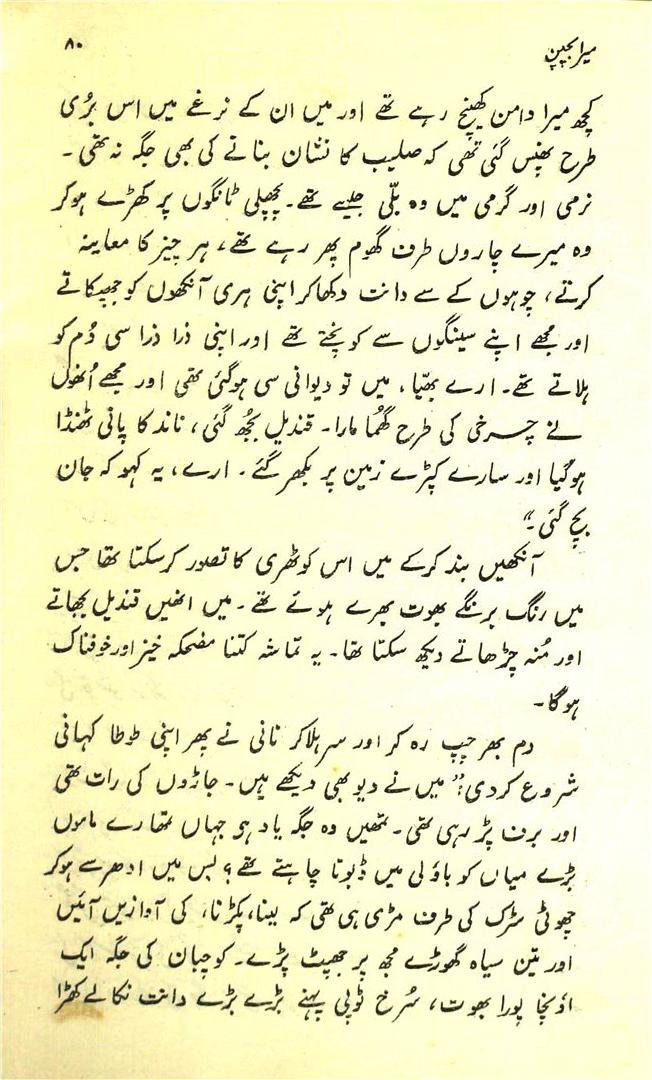 میرا بچپن
۸۰
کچھ میرا دامن کھینچ رہے تھے اور میں ان کے نرغے میں اس بُری
طرح پھنس گئی تھی کہ صلیب کا نشان بنانے کی بھی جگہ نہ تھی۔
نرمی اور گرمی میں وہ بلّی جیسے تھے۔ پچھلی ٹانگوں پر کھڑے ہوکر
وہ میرے چاروں طرف گھوم پھر رہے تھے، ہر چیز کا معاینہ
کرتے، چوہوں کے سے دانت دکھاکر اپنی ہری آنکھوں کو جھپکاتے
اور مجھے اپنے سینگوں سے کونچتے تھے اور اپنی ذرا ذرا سی دُم کو
ہلاتے تھے۔ ارے بھیّا، میں تو دیوانی سی ہوگئی تھی اور مجھے اُنھوں
نے چرخی کی طرح گھُما مارا۔ قندیل بجُھ گئی، ناند کا پانی ٹھنڈا
ہوگیا اور سارے کپڑے زمین پر بکھر گئے۔ ارے، یہ کہو کہ جان
بچ گئی۔"
آنکھیں بند کرکے میں اس کوٹھری کا تصور کرسکتا تھا جس
میں رنگ برنگے بھوت بھرے ہوئے تھے۔ میں انھیں قندیل بجھاتے
اور مُنہ چڑھاتے دیکھ سکتا تھا۔ یہ تماشہ کتنا مضحکہ خیز اور خوفناک
ہوگا۔
دم بھر چپ رہ کر اور سر ہلاکر نانی نے پھر اپنی طوطا کہانی
شروع کردی: "میں نے دیو بھی دیکھے ہیں۔ جاڑوں کی رات تھی
اور برف پڑ رہی تھی۔ تمھیں وہ جگہ یاد ہی جہاں تمھارے ماموں
بڑے میاں کو باؤلی میں ڈبونا چاہتے تھے؟ بس میں ادھر سے ہوکر
چھوٹی سڑک کی طرف مڑی ہی تھی کہ لینا، پکڑنا، کی آوازیں آئیں
اور تین سیاہ گھوڑے مجھ پر جھپٹ پڑے۔ کوچبان کی جگہ ایک
اونچا پورا بھوت، سُرخ ٹوپی پہنے بڑے بڑے دانت نکالے کھڑا